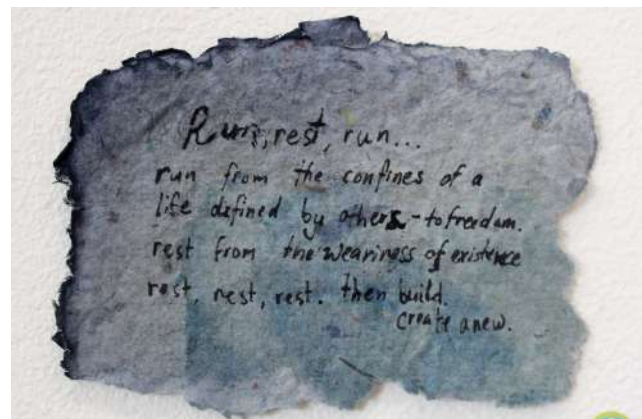 Run, rest, run...
run from the confines of a
life defined by others - to freedom.
rest from the weariness of existence
rest, nest, rest. then build.
create anew.